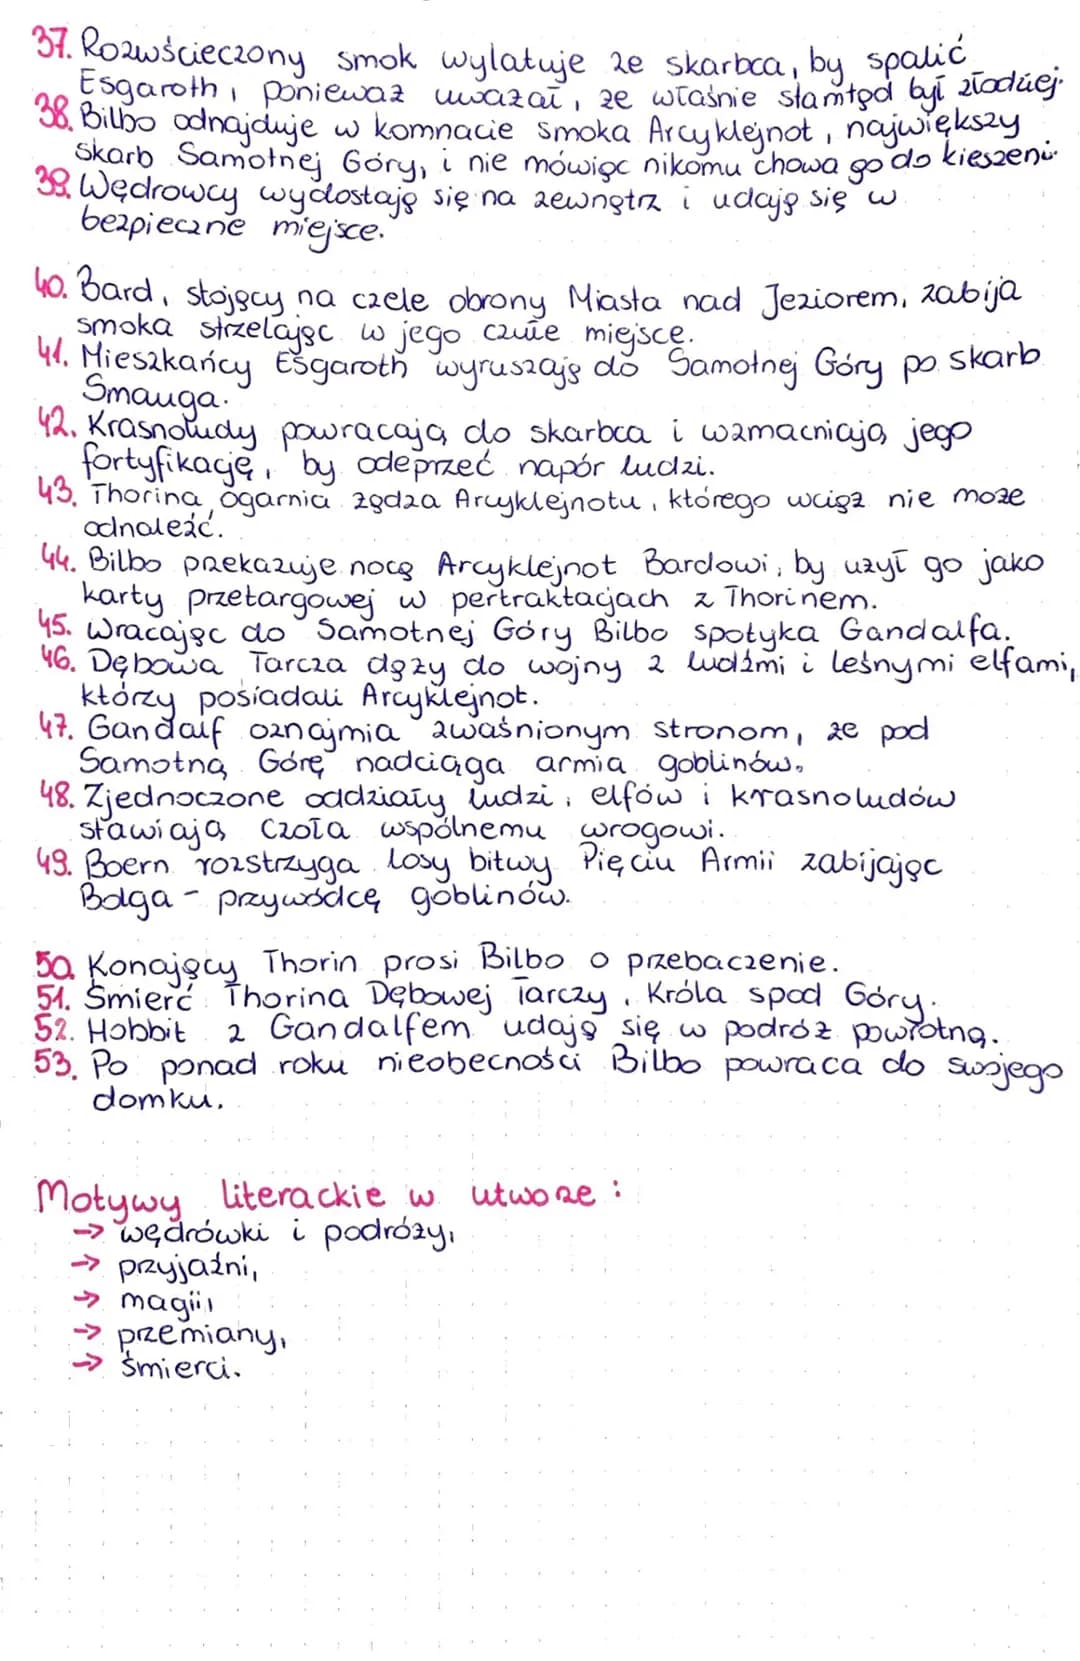 37. Rozwścieczony smok wylatuje ze skarbca, by spalić
Esgaroth, ponieważ uważał, że właśnie stamtąd był złodziej.
38. Bilbo odnajduje w komnacie smoka Arcyklejnot, największy
skarb Samotnej Góry, i nie mówiąc nikomu chowa go do kieszeni.
39. Wędrowcy wydostają się na zewnątrz i udają się w
bezpieczne miejsce.
40. Bard, stojący na czele obrony Miasta nad Jeziorem, zabija
smoka strzelając w jego czułe miejsce.
41. Mieszkańcy Esgaroth wyruszają do Samotnej Góry po skarb
Smauga.
42. Krasnoludy powracają do skarbca i wzmacniają jego
fortyfikację, by odeprzeć napór ludzi.
43. Thorina ogarnia żądza Arcyklejnotu, którego wciąż nie może
odnaleźć.
44. Bilbo przekazuje nocą Arcyklejnot Bardowi, by użył go jako
karty przetargowej w pertraktacjach z Thorinem.
45. Wracając do Samotnej Góry Bilbo spotyka Gandalfa.
46. Dębowa Tarcza dąży do wojny z ludźmi i leśnymi elfami,
którzy posiadali Arcyklejnot.
47. Gandalf oznajmia zwaśnionym stronom, że pod
Samotną Górę nadciąga armia goblinów.
48. Zjednoczone oddziały ludzi, elfów i krasnoludów
stawiają czoła wspólnemu wrogowi.
49. Boern rozstrzyga losy bitwy Pięciu Armii zabijając
Bolga - przywódcę goblinów.
50. Konający Thorin prosi Bilbo o przebaczenie.
51. Śmierć Thorina Dębowej Tarczy, Króla spod Góry.
52. Hobbit z Gandalfem udają się w podróż powrotną.
53. Po ponad roku nieobecności Bilbo powraca do swojego
domku.
Motywy literackie w utworze:
→ wędrówki i podróży,
→ przyjaźni,
→ magii,
→ przemiany,
→ śmierci.